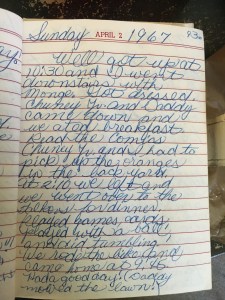 Sunday APRIL 2 1967
Well got up at
10:30 and I went
downstairs with
got dressed
and Daddy
came down and
we ated breakfast
Read the comics
and I had to
pick up the oranges
in the back yard
at 2:10 we left and
we went over to the
for dinner
played games, cards,
played with a ball,
and did tumbling
We rode the bike and
came home at 9:
Had a good day! (Daddy
mowed the lawn!)